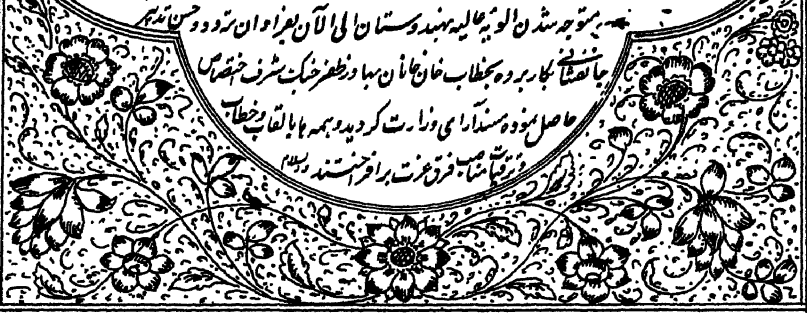 متوجه شدن الویه عالیه بهندوستان الی الآن بعزاوان تردد و حسن تدبیر
جانفشانی بکار برده بخطاب خان خانان بهادر ظفر جنگ شرف اختصاص
حاصل نموده مسندآرای وزارت گردید و همه ها بالقاب و خطاب
و ترقیات مناصب فرق عزت برافراختند والسلام